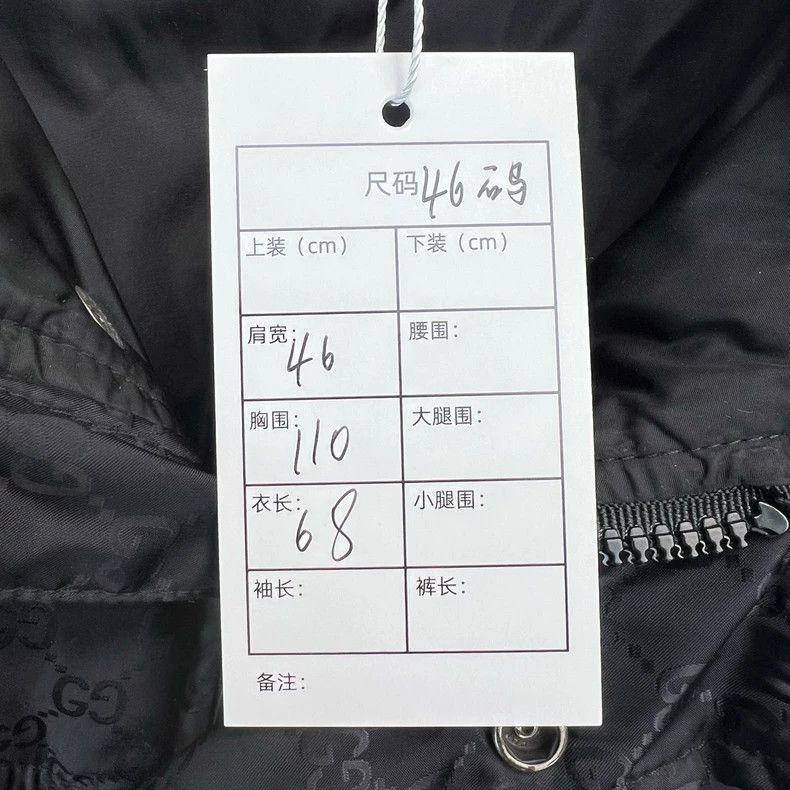 尺码46码
上装（cm） 下装（cm）
肩宽：46 腰围：
胸围：110 大腿围：
衣长：68 小腿围：
袖长： 裤长：
备注：
GG
GG